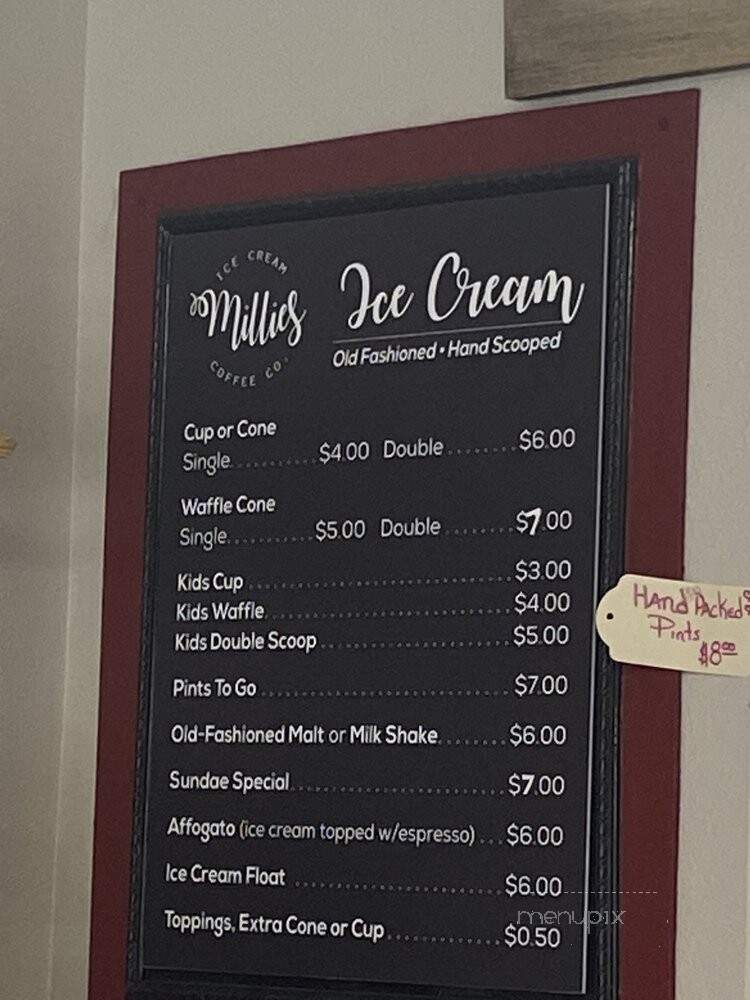 ICE CREAM
Millies
COFFEE CO.
Ice Cream
Old Fashioned • Hand Scooped
Cup or Cone
Single............$4.00 Double........$6.00
Waffle Cone
Single............$5.00 Double........$7.00
Kids Cup....................................$3.00
Kids Waffle.................................$4.00
Kids Double Scoop...........................$5.00
Pints To Go.................................$7.00
Old-Fashioned Malt or Milk Shake........$6.00
Sundae Special..............................$7.00
Affogato (ice cream topped w/espresso)...$6.00
Ice Cream Float.............................$6.00
Toppings, Extra Cone or Cup..............$0.50
HAnd PAcked
Pints
$8.00
menupix